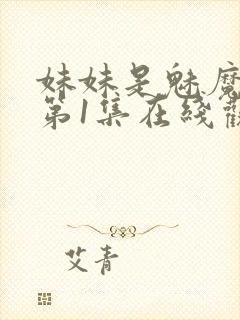 妹妹是魅魔
第1集在线観
艾青